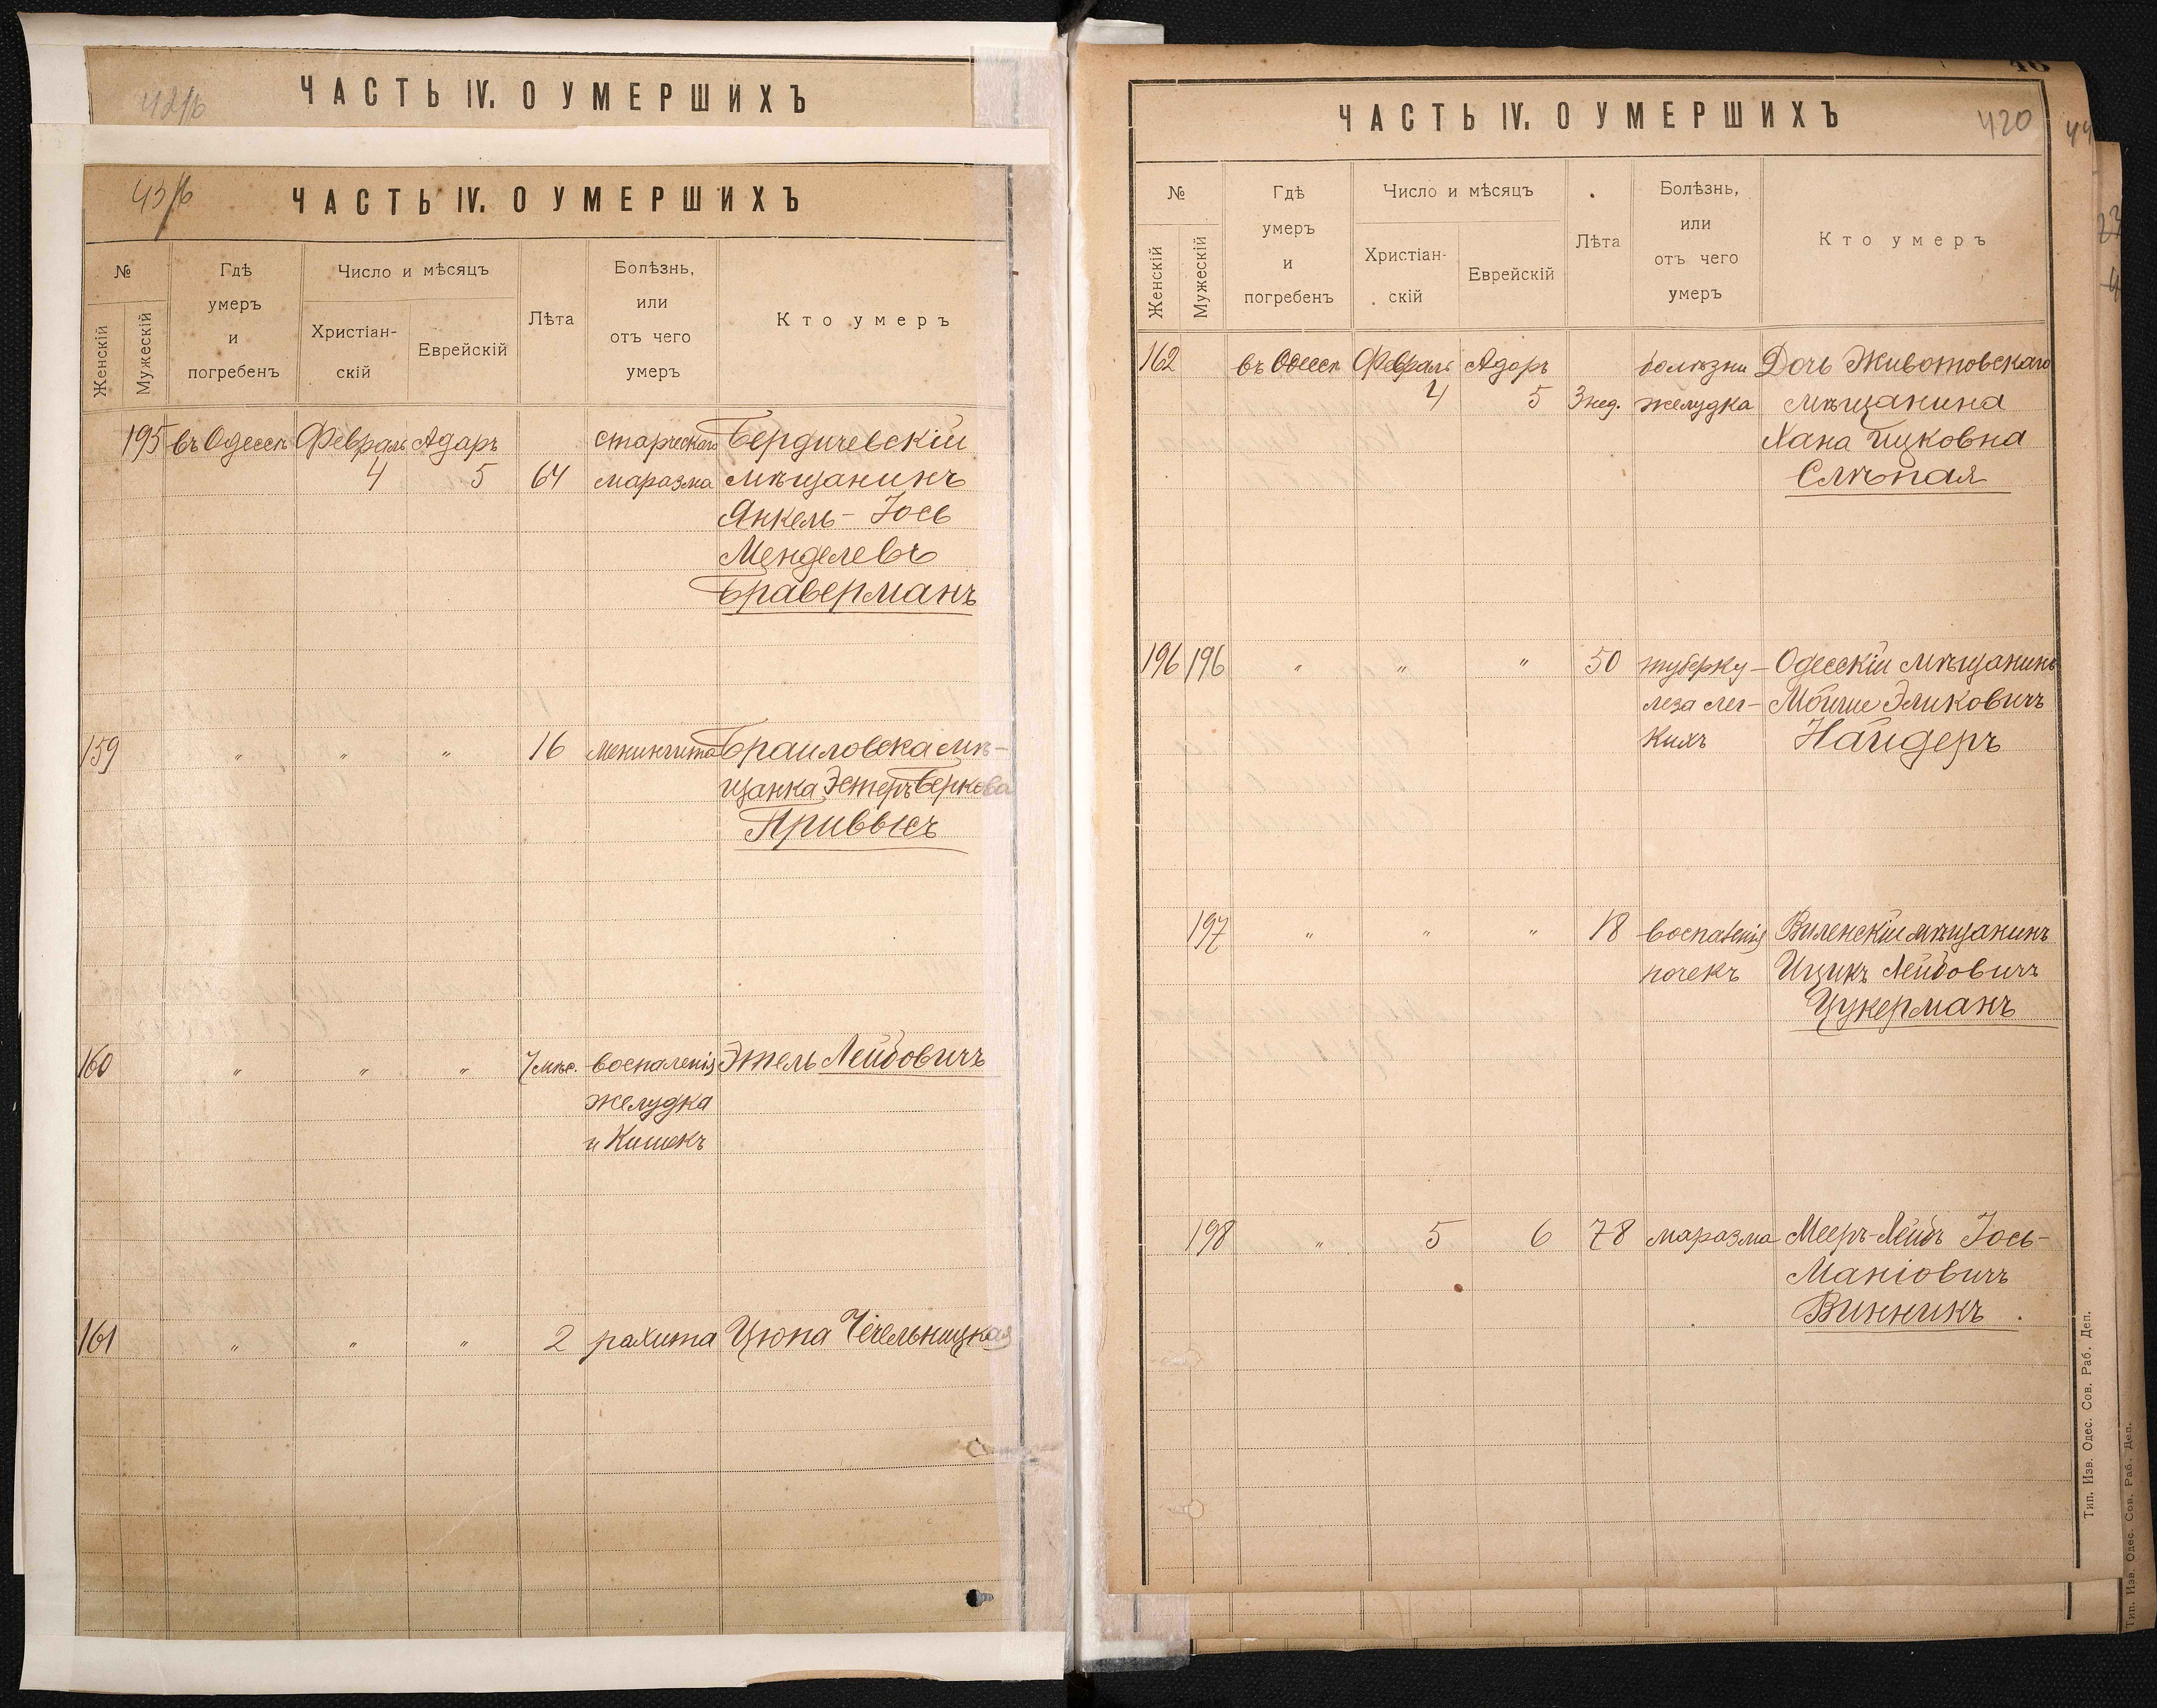 ЧАСТЬ IV. О УМЕРШИХЪ
ЧАСТЬ IV. О УМЕРШИХЪ
№
Женскій
Мужескій
Гдѣ
умеръ
и
погребенъ
Число и мѣсяцъ
Христіан-
скій
Еврейскій
Лѣта
Болѣзнь,
или
отъ чего
умеръ
Кто умеръ
195 въ Одессѣ Февраль Адаръ старческаго Бердичевскій
4 5 64 маразма мѣщанинъ
Янкель-Іось
Менделевъ
Браверманъ
159 " " " 16 менингита Браиловска мѣ-
щанка Эстеръ Беркова
Приввисъ
160 " " " 7 мѣс. воспаленія Этель Лейбовичъ
желудка
и Кишекъ
161 " " " 2 рахита Цюпа Чечельницкая
ЧАСТЬ IV. О УМЕРШИХЪ
420
№
Женскій
Мужескій
Гдѣ
умеръ
и
погребенъ
Число и мѣсяцъ
Христіан-
скій
Еврейскій
Лѣта
Болѣзнь,
или
отъ чего
умеръ
Кто умеръ
162 въ Одессѣ Февраль Адаръ болѣзни Дочь Животовскаго
4 5 3 нед. желудка мѣщанина
Хана Ицковна
Слѣпая
196 196 " " " 50 туберку- Одесскій мѣщанинъ
леза лег- Мойше Эликовичъ
Кихъ Найдеръ
197 " " " 18 воспаленія Виленскій мѣщанинъ
почекъ Ицикъ Лейбовичъ
Цукерманъ
198 " 5 6 78 маразма Мееръ-Лейбъ Іось-
Маніовичъ
Винникъ.
Тип. Изв. Одес. Сов. Раб. Деп.
Тип. Изв. Одес. Сов. Раб. Деп.